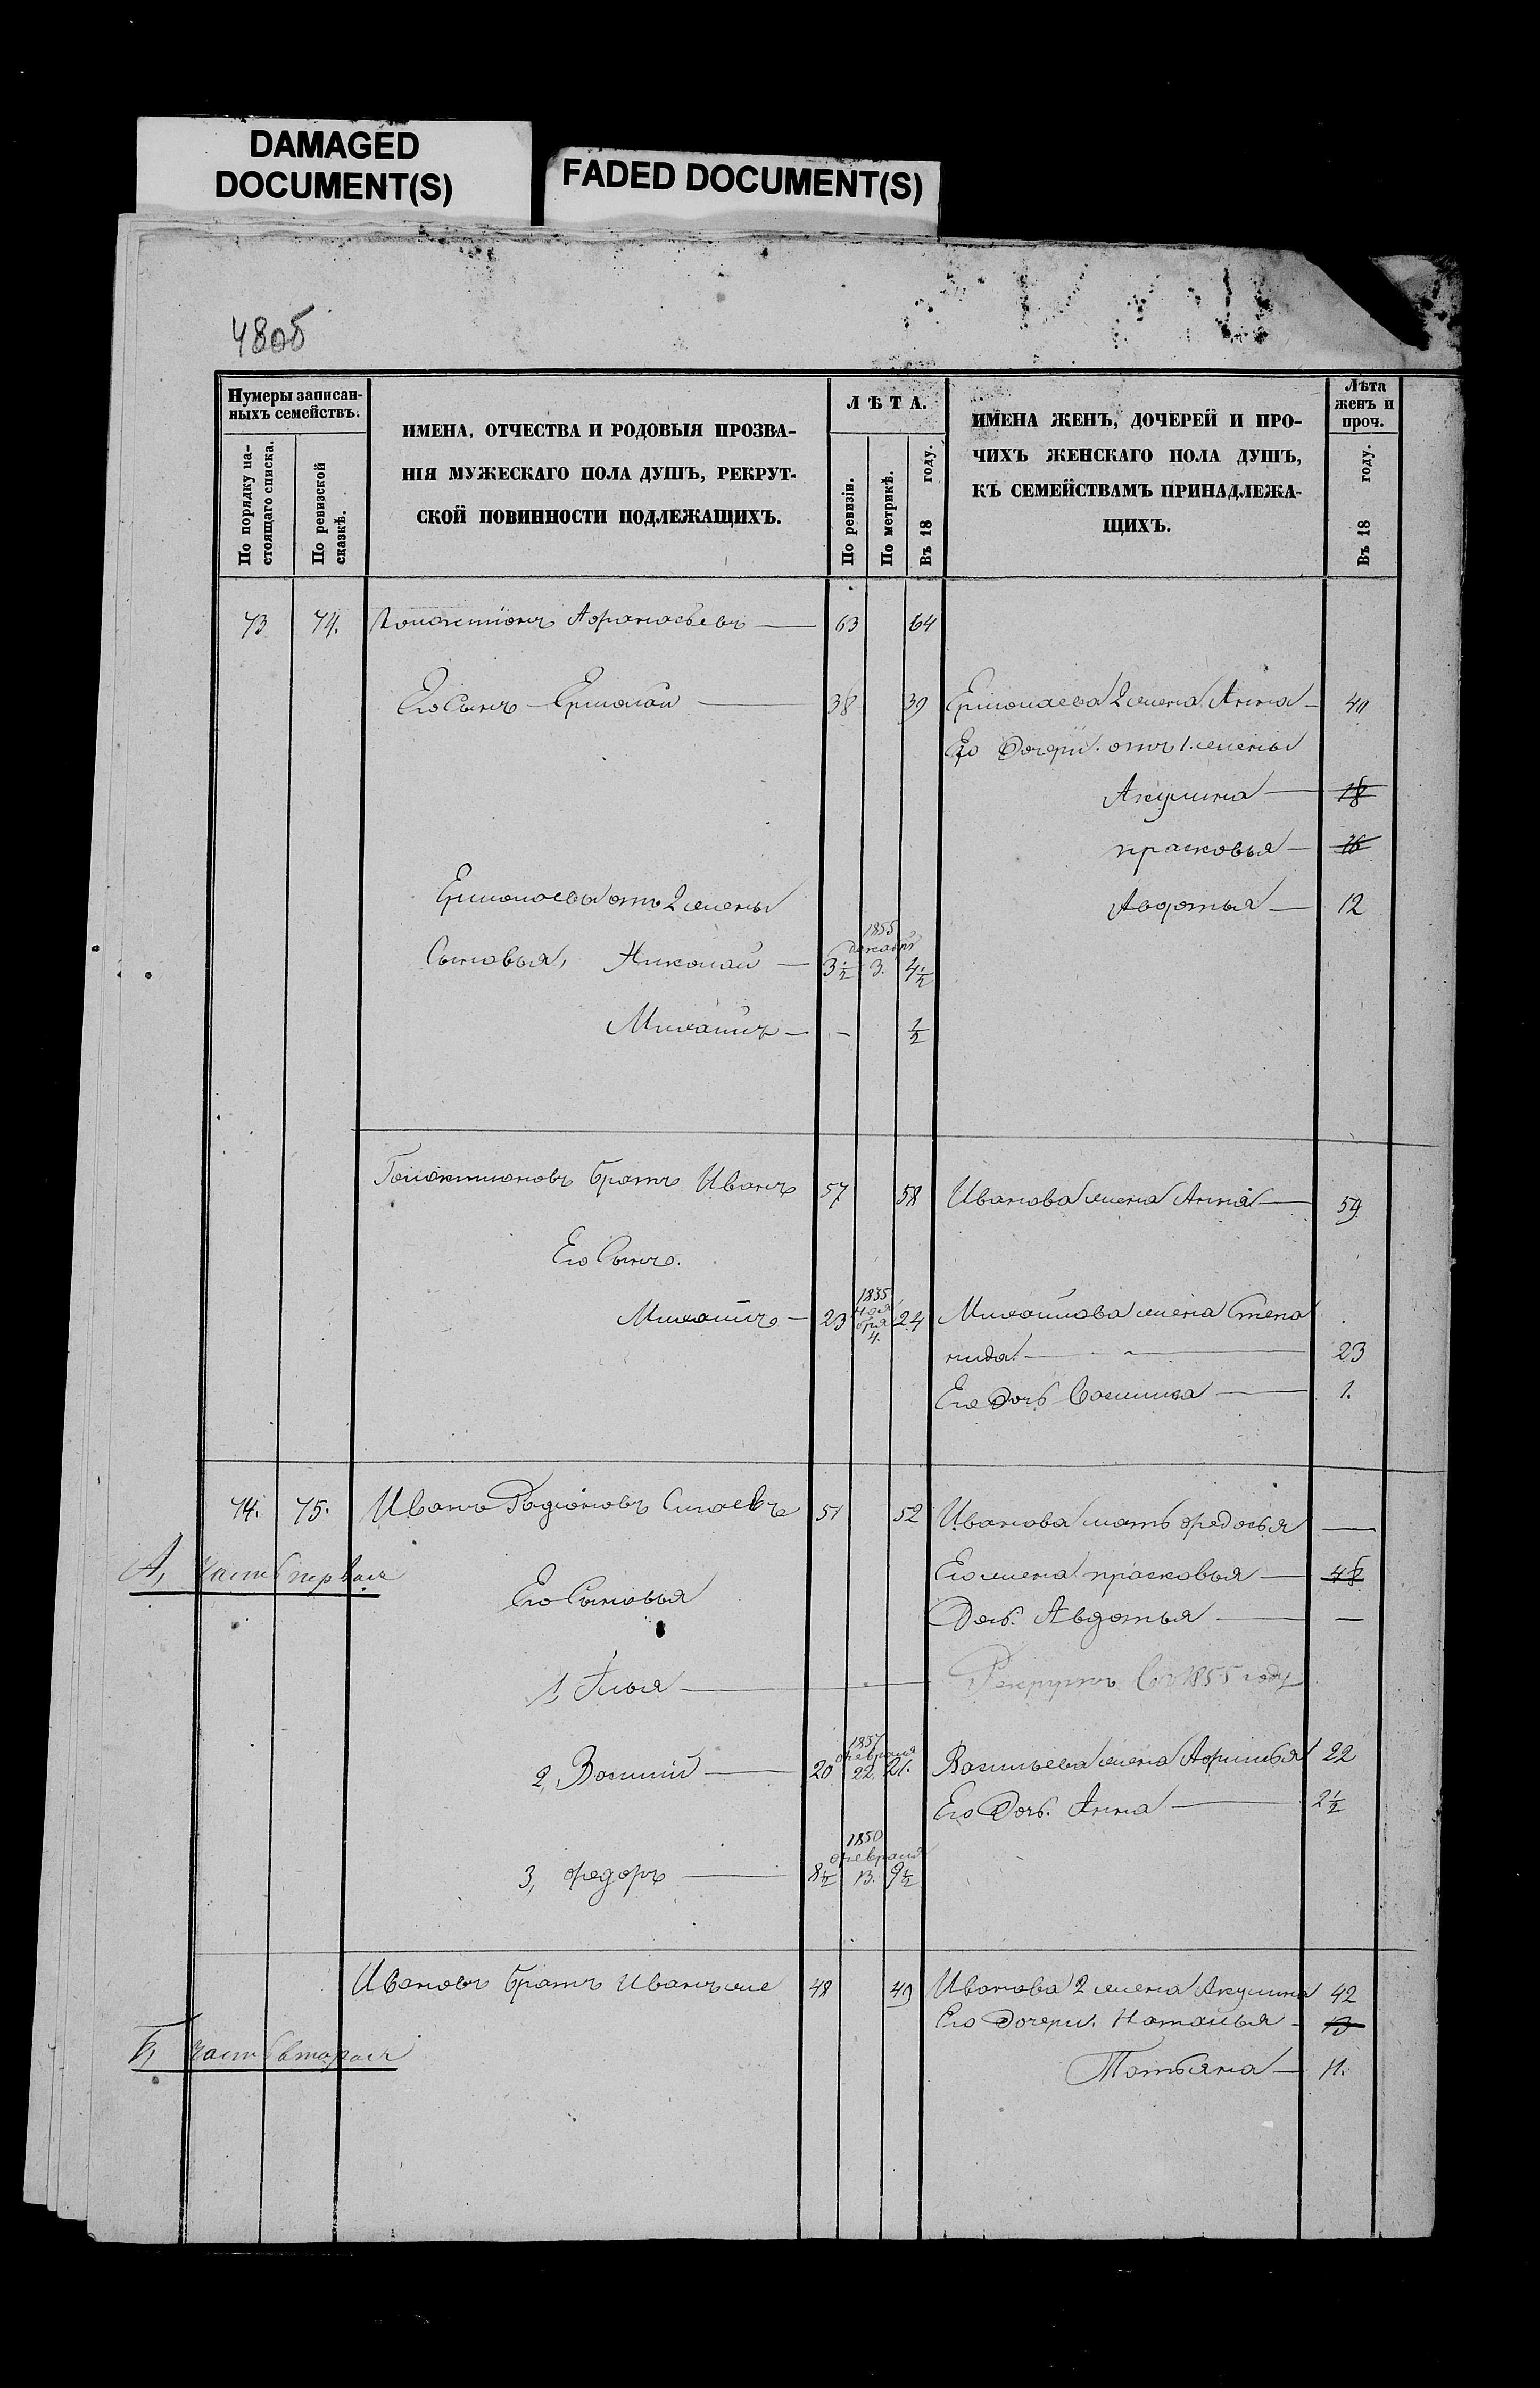 DAMAGED
DOCUMENT(S)
FADED DOCUMENT(S)
48об
Нумеры записан-
ныхъ семействъ.
По порядку на-
стоящаго списка.
По ревизской
сказкѣ.
ИМЕНА, ОТЧЕСТВА И РОДОВЫЯ ПРОЗВА-
НІЯ МУЖЕСКАГО ПОЛА ДУШЪ, РЕКРУТ-
СКОЙ ПОВИННОСТИ ПОДЛЕЖАЩИХЪ.
ЛѢТА.
По ревизіи.
По метрикѣ.
Въ 18 году.
ИМЕНА ЖЕНЪ, ДОЧЕРЕЙ И ПРО-
ЧИХЪ ЖЕНСКАГО ПОЛА ДУШЪ,
КЪ СЕМЕЙСТВАМЪ ПРИНАДЛЕЖА-
ЩИХЪ.
Лѣта
женъ и
проч.
Въ 18 году.
73 74. Афанасьевъ — 63 64
Его Сынъ — Ермолай — 38 39 Ермолаева 2 жена Анна — 40
Его Дочери. отъ 1. жены
Акулина — 18
прасковья — 16
Ермолаевы отъ 2 жены
Авдотья — 12
1855
декабря
Сыновья, Николай — 3½ 3. 4½
Михаилъ — - ½
Галактионовъ братъ Иванъ 57 58 Иванова жена Анна — 59.
Его Сынъ.
1835
ноя
бря
4.
Михаилъ — 23 24 Михайлова жена Степа
нида — 23
Его Дочь Василиса — 1.
74. 75. Иванъ Радіоновъ Силаевъ 51 52 Иванова мать федосья —
А, часть первая
Его жена прасковья — 48
Его Сыновья
Дочь. Авдотья — —
1, Илья — Рекрутъ въ 1855 году
1837
февраля
2, Василий — 20 22. 21. Васильева жена Афимья 22
Его Дочь. Анна — 2½
1850
февраля
3, федоръ — 8½ 13. 9½
Ивановъ братъ Иванъ же 48 49 Иванова 2 жена Акулина 42
Его Дочери. Наталья — 13
Б, часть вторая
Татьяна — 11.